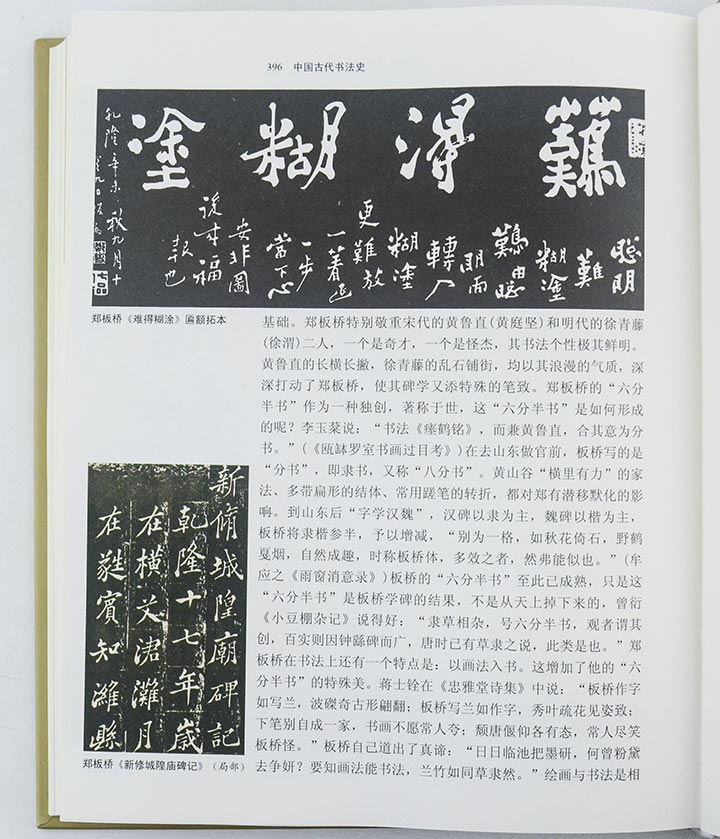 396 中国古代书法史
難得糊塗
聰明
難
糊塗
難由聰
明而
轉入
糊塗
更難放
一着退
一步
當下心
安非圖
後来福
報也
乾隆辛未秋九月十
郑板桥《难得糊涂》匾额拓本
基础。郑板桥特别敬重宋代的黄鲁直(黄庭坚)和明代的徐青藤
(徐渭)二人，一个是奇才，一个是怪杰，其书法个性极其鲜明。
黄鲁直的长横长撇，徐青藤的乱石铺街，均以其浪漫的气质，深
深打动了郑板桥，使其碑学又添特殊的笔致。郑板桥的“六分
半书”作为一种独创，著称于世，这“六分半书”是如何形成
的呢？李玉棻说：“书法《瘗鹤铭》，而兼黄鲁直，合其意为分
书。”(《瓯缽罗室书画过目考》)在去山东做官前，板桥写的是
“分书”，即隶书，又称“八分书”。黄山谷“横里有力”的家
法、多带扁形的结体、常用蹉笔的转折，都对郑有潜移默化的影
响。到山东后“字学汉魏”，汉碑以隶为主，魏碑以楷为主，
板桥将隶楷参半，予以增减，“别为一格，如秋花倚石，野鹤
戛烟，自然成趣，时称板桥体，多效之者，然弗能似也。”(牟
应之《雨窗消意录》)板桥的“六分半书”至此已成熟，只是这
“六分半书”是板桥学碑的结果，不是从天上掉下来的，曾衍
《小豆棚杂记》说得好：“隶草相杂，号六分半书，观者谓其
创，百实则因钟繇碑而广，唐时已有草隶之说，此类是也。”郑
板桥在书法上还有一个特点是：以画法入书。这增加了他的“六
分半书”的特殊美。蒋士铨在《忠雅堂诗集》中说：“板桥作字
如写兰，波磔奇古形翩翻；板桥写兰如作字，秀叶疏花见姿致；
下笔别自成一家，书画不愿常人夸；颓唐偃仰各有态，常人尽笑
板桥怪。”板桥自己道出了真谛：“日日临池把墨研，何曾粉黛
去争妍？要知画法能书法，兰竹如同草隶然。”绘画与书法是相
新脩城隍廟碑記
乾隆十七年歲
在橫艾涒灘月
在蕤賓知濰縣
郑板桥《新修城隍庙碑记》(局部)